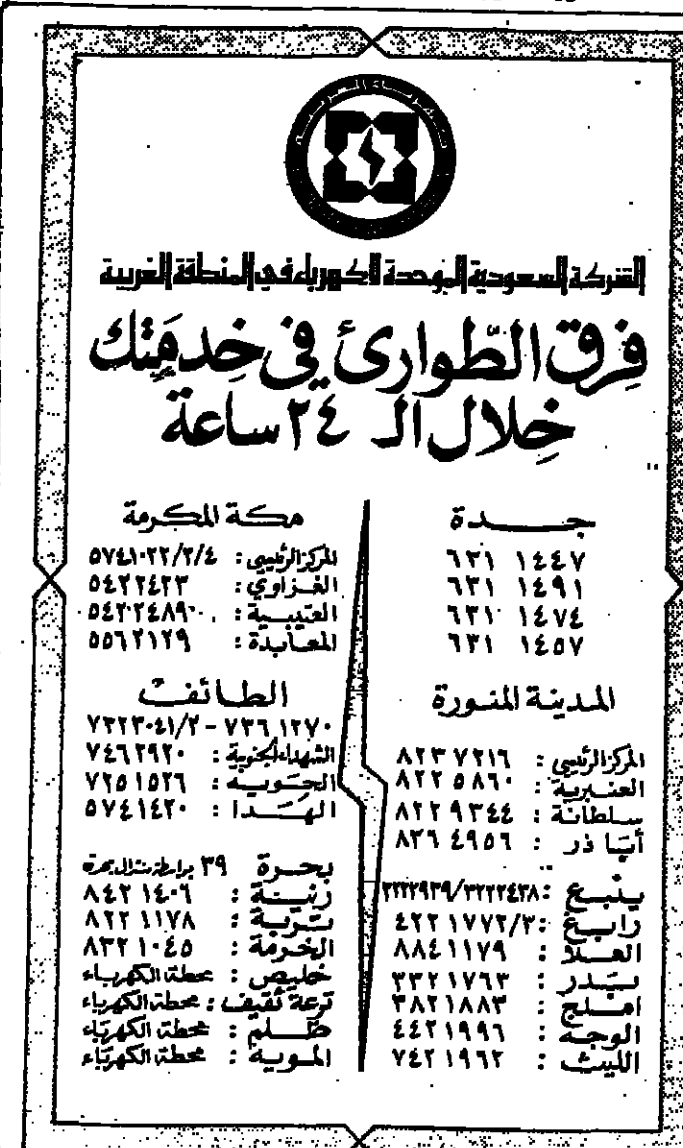 الشركة السعودية الموحدة للكهرباء في المنطقة الغربية
فرق الطوارئ في خدمتك
خلال الـ ٢٤ ساعة
جدة
٦٣١ ١٤٤٧
٦٣١ ١٤٩١
٦٣١ ١٤٧٤
٦٣١ ١٤٥٧
المدينة المنورة
المركز الرئيسي : ٨٢٣ ٧٢١٦
العنبرية : ٨٢٢ ٥٨٦٠
سلطانة : ٨٢٢ ٩٣٤٤
أبيا ذر : ٨٢٦ ٤٩٥٦
ينبع : ٣٢٢٢٩٣٩/٣٢٢٢٤٣٨
رابغ : ٤٢٢ ١٧٧٢/٣
العلا : ٨٨٤ ١١٧٩
بدر : ٣٣٢ ١٧٦٣
املج : ٣٨٢ ١٨٨٣
الوجه : ٤٤٢ ١٩٩٦
الليث : ٧٤٢ ١٩٦٢
مكة المكرمة
المركز الرئيسي : ٥٧٤١٠٢٢/٣/٤
الغزاوي : ٥٤٢٢٤٢٣
العتيبية : ٥٤٢٢٤٨٩
المعابدة : ٥٥٦٢١٢٩
الطائف
٧٣٦ ١٢٧٠ - ٧٣٢٣٠٤١/٢
الشهداء الجنوبية : ٧٤٦ ٢٩٢٠
الحوية : ٧٢٥ ١٥٢٦
الهدا : ٥٧٤١٤٢٠
بحرة ٣٩ بواسطة سنترال بحرة
رنية : ٨٤٢ ١٤٠٦
تربة : ٨٢٢ ١١٧٨
الخرمة : ٨٣٢ ١٠٤٥
خليص : محطة الكهرباء
ترعة ثقيف : محطة الكهرباء
ظلم : محطة الكهرباء
المويه : محطة الكهرباء